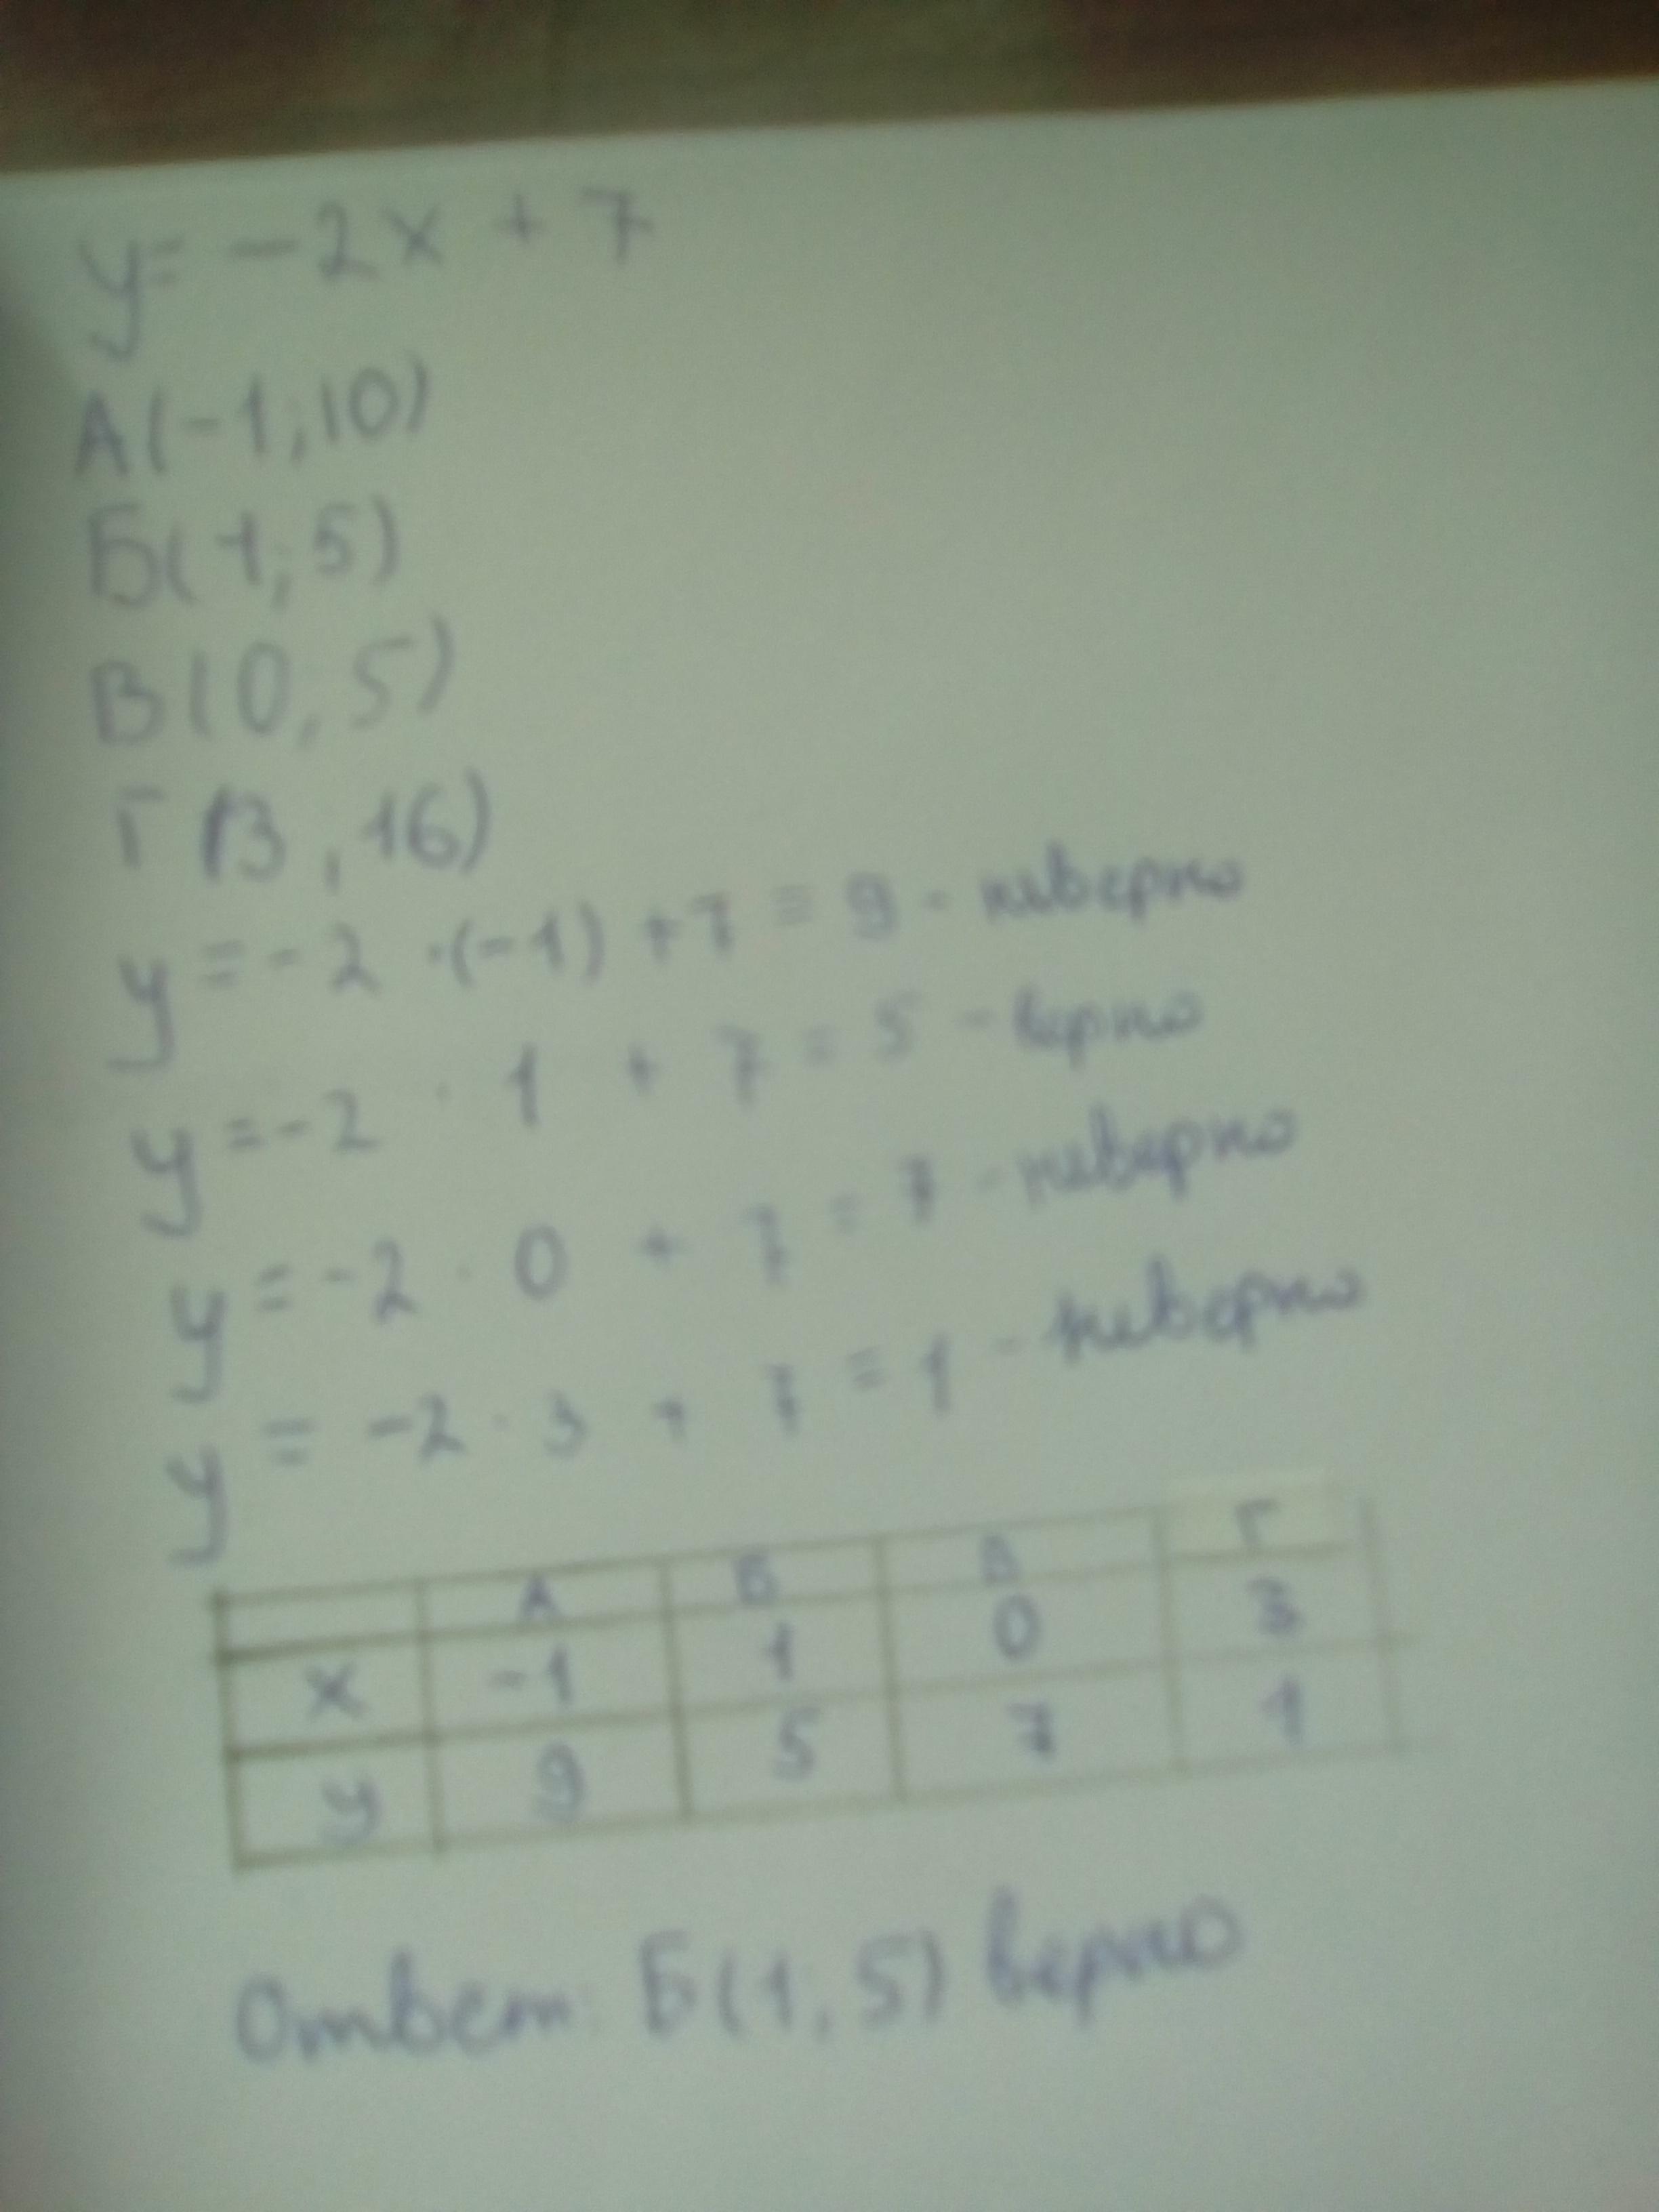 y = -2x + 7
А(-1; 10)
Б(1; 5)
В(0, 5)
Г(3, 16)
y = -2 · (-1) + 7 = 9 - неверно
y = -2 · 1 + 7 = 5 - верно
y = -2 · 0 + 7 = 7 - неверно
y = -2 · 3 + 7 = 1 - неверно
А Б В Г
x -1 1 0 3
y 9 5 7 1
Ответ: Б(1, 5) верно